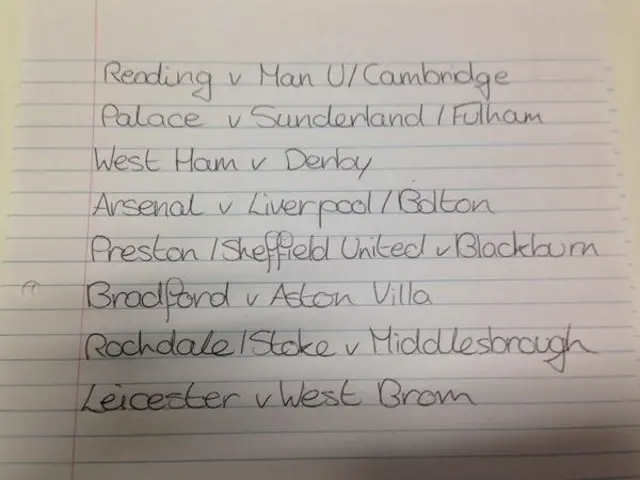 Reading v Man U/Cambridge
Palace v Sunderland/Fulham
West Ham v Derby
Arsenal v Liverpool/Bolton
Preston/Sheffield United v Blackburn
Bradford v Aston Villa
Rochdale/Stoke v Middlesbrough
Leicester v West Brom